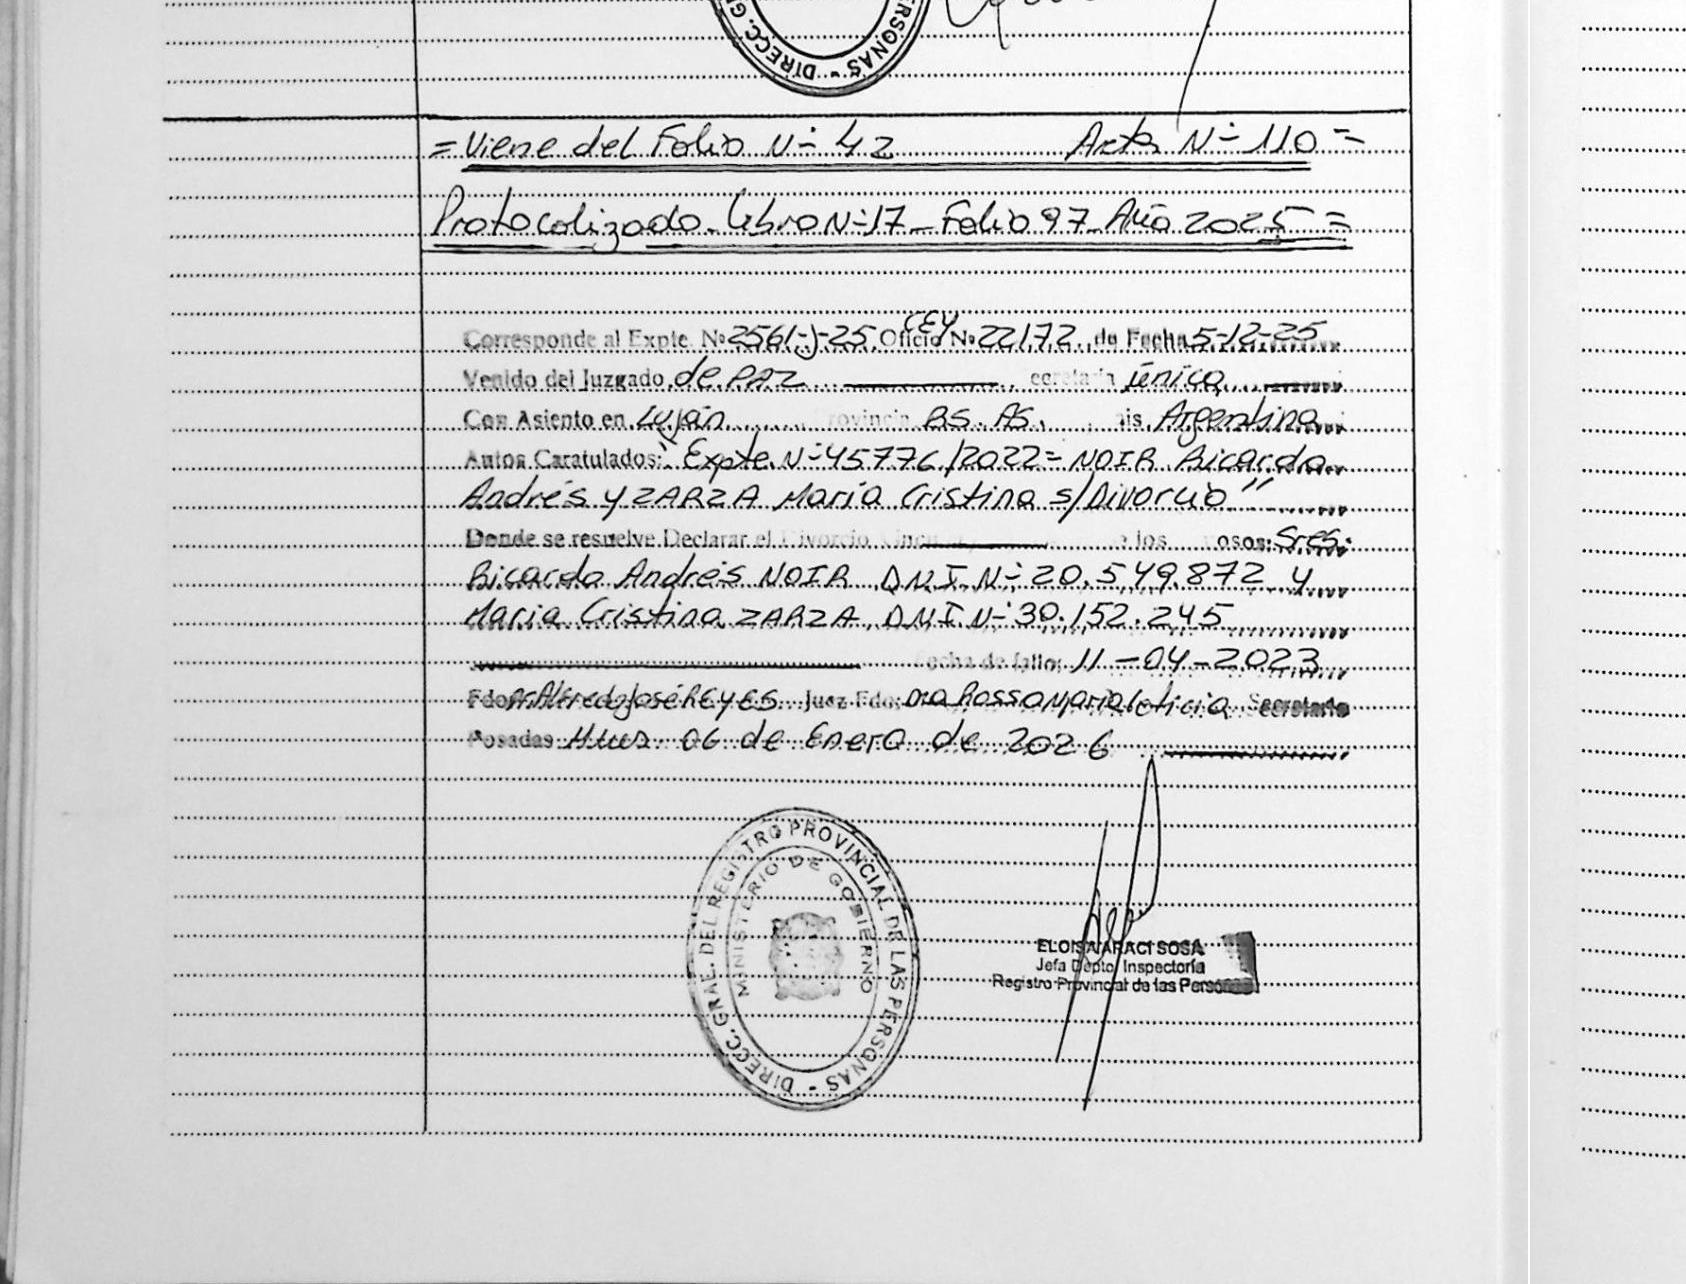 DIRECC. GR
ERSONAS -
= Viene del Folio N° 42 Acta N° 110 =
Protocolizado - Libro N° 17 - Folio 97 - Año 2025 =
Corresponde al Expte. Nº 2561-J-25 Oficio CEY Nº 22172 de Fecha 5-12-25
Venido del Juzgado de PAZ ecretaria única
Con Asiento en Luján rovincia BS. AS. ais Argentina
Autos Caratulados: "Expte N° 45776/2022 = NOIR Ricardo
Andrés y ZARZA María Cristina s/Divorcio"
Donde se resuelve Declarar el Divorcio Vincu los osos: Sres.
Ricardo Andrés NOIR DNI N° 20.549.872 y
María Cristina ZARZA DNI N° 30.152.245
Fecha de fallo: 11-04-2023
Fdo: Alfredo José REYES Juez Fdo: Dra Rossa María Leticia Secretario
Posadas Mnes 06 de Enero de 2026
DIRECC. GRAL. DEL REGISTRO PROVINCIAL DE LAS PERSONAS -
MINISTERIO DE GOBIERNO
ELOISA ARACI SOSA
Jefa Depto. Inspectoría
Registro Provincial de las Personas